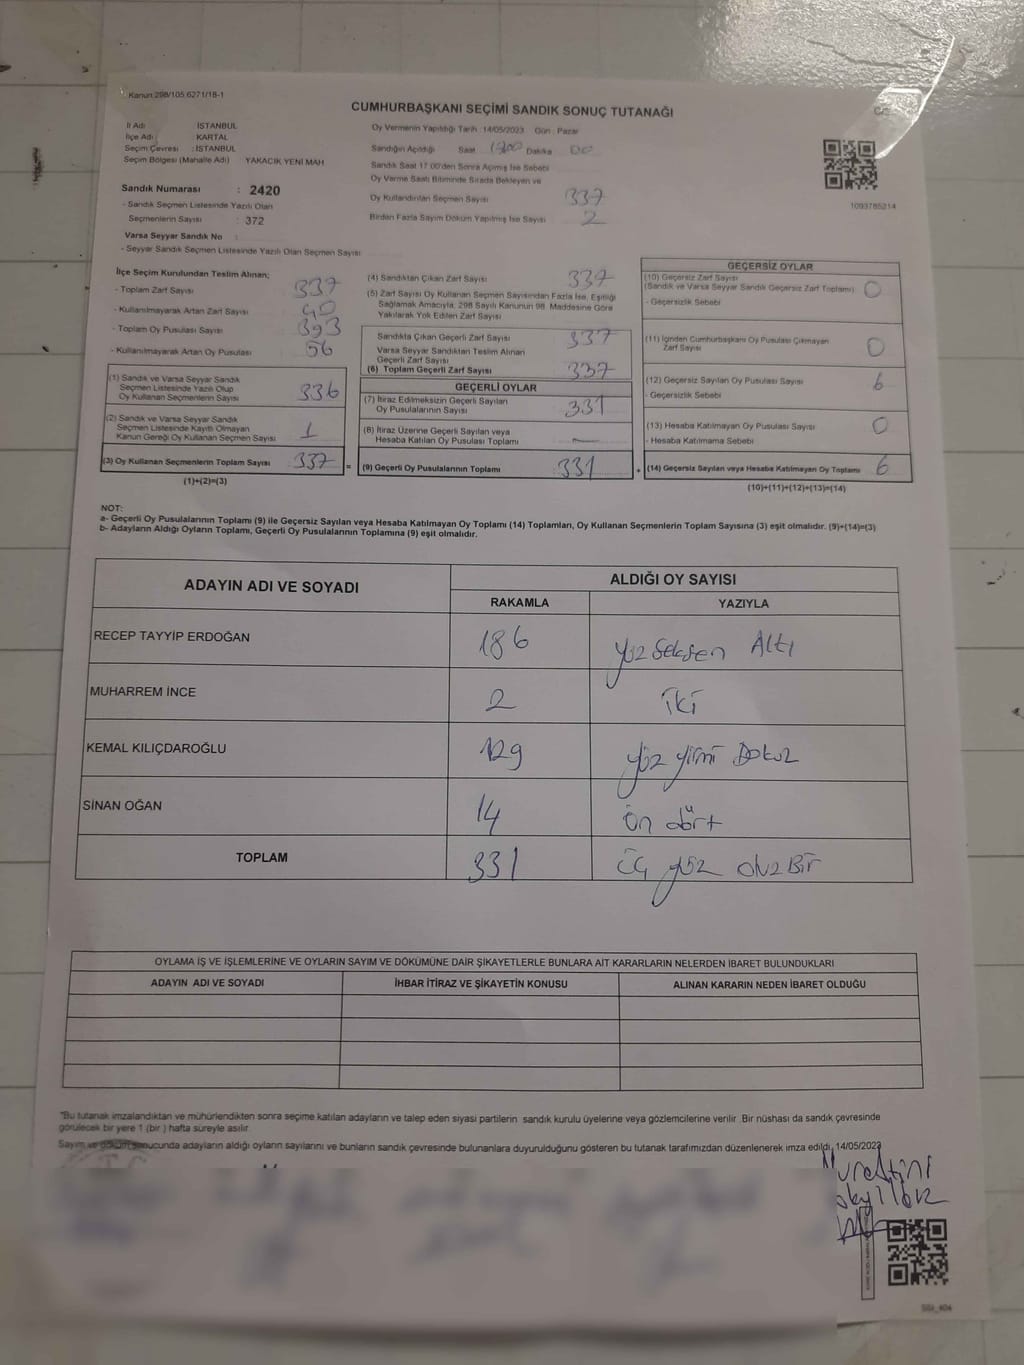 Kanun:298/105,6271/18-1
CUMHURBAŞKANI SEÇİMİ SANDIK SONUÇ TUTANAĞI
İl Adı : İSTANBUL
İlçe Adı : KARTAL
Seçim Çevresi : İSTANBUL
Seçim Bölgesi (Mahalle Adı) YAKACIK YENİ MAH
Sandık Numarası : 2420
- Sandık Seçmen Listesinde Yazılı Olan
Seçmenlerin Sayısı : 372
Varsa Seyyar Sandık No :
- Seyyar Sandık Seçmen Listesinde Yazılı Olan Seçmen Sayısı
Oy Vermenin Yapıldığı Tarih :14/05/2023 Gün : Pazar
Sandığın Açıldığı Saat Dakika 00
Sandık Saat 17:00'den Sonra Açımış İse Sebebi
Oy Verme Saati Bitiminde Sırada Bekleyen ve
Oy Kullandırılan Seçmen Sayısı 337
Birden Fazla Sayım Döküm Yapılmış İse Sayısı 2
1093785214
İlçe Seçim Kurulundan Teslim Alınan;
- Toplam Zarf Sayısı 337
- Kullanılmayarak Artan Zarf Sayısı 40
- Toplam Oy Pusulası Sayısı 393
- Kullanılmayarak Artan Oy Pusulası 56
(1) Sandık ve Varsa Seyyar Sandık
Seçmen Listesinde Yazılı Olup
Oy Kullanan Seçmenlerin Sayısı 336
(2) Sandık ve Varsa Seyyar Sandık
Seçmen Listesinde Kayıtlı Olmayan
Kanun Gereği Oy Kullanan Seçmen Sayısı 1
(3) Oy Kullanan Seçmenlerin Toplam Sayısı 337 =
(1)+(2)=(3)
(4) Sandıktan Çıkan Zarf Sayısı 337
(5) Zarf Sayısı Oy Kullanan Seçmen Sayısından Fazla İse, Eşitliği
Sağlamak Amacıyla, 298 Sayılı Kanunun 98. Maddesine Göre
Yakılarak Yok Edilen Zarf Sayısı
Sandıkta Çıkan Geçerli Zarf Sayısı 337
Varsa Seyyar Sandıktan Teslim Alınan
Geçerli Zarf Sayısı
(6) Toplam Geçerli Zarf Sayısı 337
GEÇERLİ OYLAR
(7) İtiraz Edilmeksizin Geçerli Sayılan
Oy Pusulalarının Sayısı 331
(8) İtiraz Üzerine Geçerli Sayılan veya
Hesaba Katılan Oy Pusulası Toplamı —
(9) Geçerli Oy Pusulalarının Toplamı 331 +
GEÇERSİZ OYLAR
(10) Geçersiz Zarf Sayısı
(Sandık ve Varsa Seyyar Sandık Geçersiz Zarf Toplamı) 0
- Geçersizlik Sebebi
(11) İçinden Cumhurbaşkanı Oy Pusulası Çıkmayan
Zarf Sayısı 0
(12) Geçersiz Sayılan Oy Pusulası Sayısı 6
- Geçersizlik Sebebi
(13) Hesaba Katılmayan Oy Pusulası Sayısı 0
- Hesaba Katılmama Sebebi
(14) Geçersiz Sayılan veya Hesaba Katılmayan Oy Toplamı 6
(10)+(11)+(12)+(13)=(14)
NOT:
a- Geçerli Oy Pusulalarının Toplamı (9) ile Geçersiz Sayılan veya Hesaba Katılmayan Oy Toplamı (14) Toplamları, Oy Kullanan Seçmenlerin Toplam Sayısına (3) eşit olmalıdır. (9)+(14)=(3)
b- Adayların Aldığı Oyların Toplamı, Geçerli Oy Pusulalarının Toplamına (9) eşit olmalıdır.
ADAYIN ADI VE SOYADI
ALDIĞI OY SAYISI
RAKAMLA YAZIYLA
RECEP TAYYİP ERDOĞAN 186 yüz Seksen Altı
MUHARREM İNCE 2 iki
KEMAL KILIÇDAROĞLU 129 yüz yirmi Dokuz
SİNAN OĞAN 14 ön dört
TOPLAM 331 üç yüz otuz Bir
OYLAMA İŞ VE İŞLEMLERİNE VE OYLARIN SAYIM VE DÖKÜMÜNE DAİR ŞİKAYETLERLE BUNLARA AİT KARARLARIN NELERDEN İBARET BULUNDUKLARI
ADAYIN ADI VE SOYADI İHBAR İTİRAZ VE ŞİKAYETİN KONUSU ALINAN KARARIN NEDEN İBARET OLDUĞU
"Bu tutanak imzalandıktan ve mühürlendikten sonra seçime katılan adayların ve talep eden siyasi partilerin sandık kurulu üyelerine veya gözlemcilerine verilir. Bir nüshası da sandık çevresinde
görülecek bir yere 1 (bir ) hafta süreyle asılır.
Sayım ve döküm sonucunda adayların aldığı oyların sayılarını ve bunların sandık çevresinde bulunanlara duyurulduğunu gösteren bu tutanak tarafımızdan düzenlenerek imza edildi. 14/05/2023